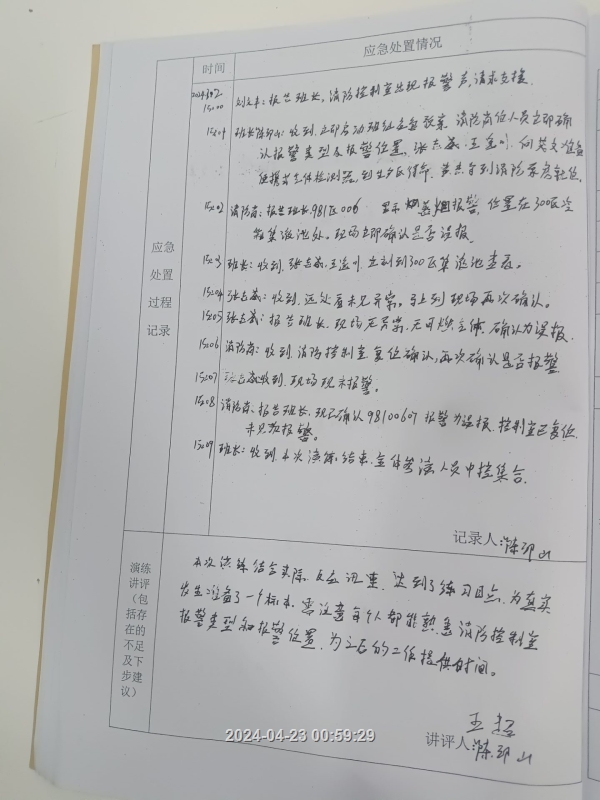 应急处置情况
时间
应急
处置
过程
记录
15:00 报告班长,消防控制室出现报警声,请求支援。
15:01 班长陈邵山:收到,立即启动班组应急预案,消防岗位人员立即确
认报警类型及报警位置,张志斌、王金川、何英文准备
便携式气体检测器,到生产区待命,到消防泵房就位。
15:02 消防岗:报告班长,981区006 显示 感烟报警,位置在300区
集液池处。现场立即确认是否误报。
15:03 班长:收到,张志斌、王金川立刻到300区集液池查看。
15:04 张志斌:收到,远处看未见异常。马上到现场再次确认。
15:05 张志斌:报告班长,现场无异常,无可燃气体,确认为误报。
15:06 消防岗:收到,消防控制室复位确认,再次确认是否报警
15:07 张志斌:收到,现场现未报警。
15:08 消防岗:报告班长,现已确认98100607报警为误报,控制室已复位,
未见报警。
15:09 班长:收到,本次演练结束,全体参演人员中控集合。
记录人:陈邵山
演练
讲评
(包
括存
在的
不足
及下
步建
议)
本次演练结合实际,反应迅速,达到了练习目的,为真实
发生准备了一个标本,需注意每个人都能熟悉消防控制室
报警类型和报警位置,为之后的工作提供时间。
讲评人:陈邵山
2024-04-23 00:59:29